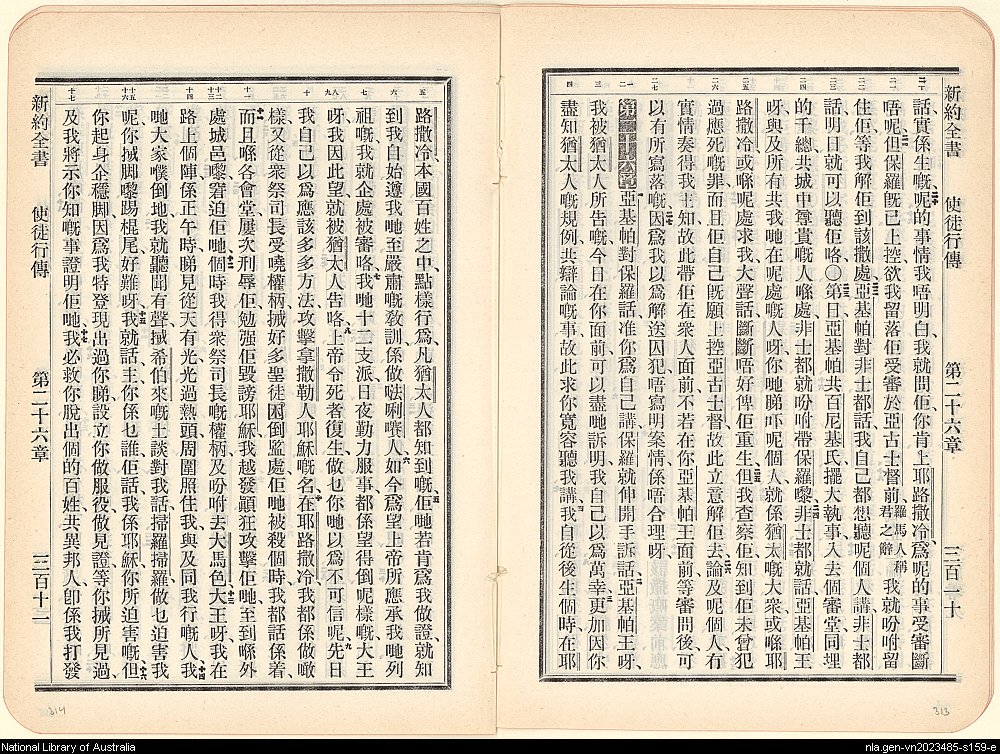 新約全書 使徒行傳 第二十六章 三百一十
話實係生嘅、呢的事情我唔明白、我就問佢、你肯上耶路撒冷、爲呢的事受審斷
唔呢、但保羅旣已上控、欲我留落佢受審於亞古士督前、羅馬人稱君之辭 我就吩咐留
住佢、等我解佢到該撒處、亞基帕對非士都話、我自己都想聽呢個人講、非士都
話、明日就可以聽佢咯○第日亞基帕共百尼基氏、擺大執事入去個審堂、同埋
的千總、共城中尊貴嘅人喺處、非士都就吩咐帶保羅嚟、非士都就話、亞基帕王
呀、與及所有共我哋在呢處嘅人呀、你哋睇吓呢個人、就係猶太嘅大衆、或喺耶
路撒冷、或喺呢處求我、大聲話、斷斷唔好俾佢重生、但我查察佢、知到佢未曾犯
過應死嘅罪、而且佢自己旣願上控亞古士督、故此立意解佢去、論及呢個人、有
實情奏得我主知、故此帶佢在衆人面前、不若在你亞基帕王面前、等審問後、可
以有所寫落嘅、因爲我以爲解送囚犯、唔寫明案情、係唔合理呀、
第二十六章 亞基帕對保羅話、准你爲自己講、保羅就伸開手訴話、亞基帕王呀、
我被猶太人所告嘅、今日在你面前、可以盡哋訴明、我自己以爲萬幸、更加因你
盡知猶太人嘅規例、共辯論嘅事、故此求你寬容聽我講、我自從後生個時、在耶
313
路撒冷、本國百姓之中、點樣行爲、凡猶太人都知到嘅、佢哋若肯爲我做證、就知
到我自始遵我哋至嚴肅嘅教訓、係做㖿唎嚷人、如今爲望上帝所應承我哋列
祖嘅、我就企處被審咯、我哋十二支派、日夜勤力服事、都係望得倒呢樣嘅、大王
呀、我因此望、就被猶太人告咯、上帝令死者復生、做乜你哋以爲不可信呢、先日
我自己以爲應該多多方法、攻擊拿撒勒人耶穌嘅名、在耶路撒冷、我都係做噉
樣、又從衆祭司長受嘵權柄、搣好多聖徒困倒監處、佢哋被殺個時、我都話係着、
而且喺各會堂、屢次刑辱佢、勉強佢毀謗耶穌、我越發顛狂攻擊佢哋、至到喺外
處城邑嚟窘迫佢哋、個時我得衆祭司長嘅權柄、及吩咐去大馬色、大王呀、我在
路上個陣、係正午時、睇見從天有光、光過熱頭、周圍照住我、與及同我行嘅人、我
哋大家僕倒地、我就聽聞有聲、搣希伯來嘅土談對我話、掃羅掃羅、做乜迫害我
呢、你搣脚嚟踢棍尾、好難呀、我就話、主你係乜誰、佢話、我係耶穌、你所迫害嘅、但
你起身企穩脚、因爲我特登現出過你睇、設立你做服役、做見證、等你搣所見過、
及我將示你知嘅事證明佢哋、我必救你脫出個的百姓共異邦人、卽係我打發
新約全書 使徒行傳 第二十六章 三百十二
314
National Library of Australia
nla.gen-vn2023485-s159-e